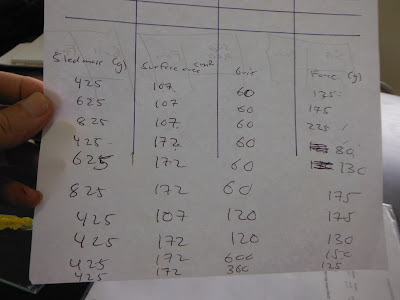 Sled mass (g) Surface area cm² Grit Force (g)
425 107 60 135
625 107 60 175
825 107 60 225
425 172 60 80
625 172 60 130
825 172 60 175
425 107 120 175
425 172 120 130
425 172 600 150
425 172 360 125